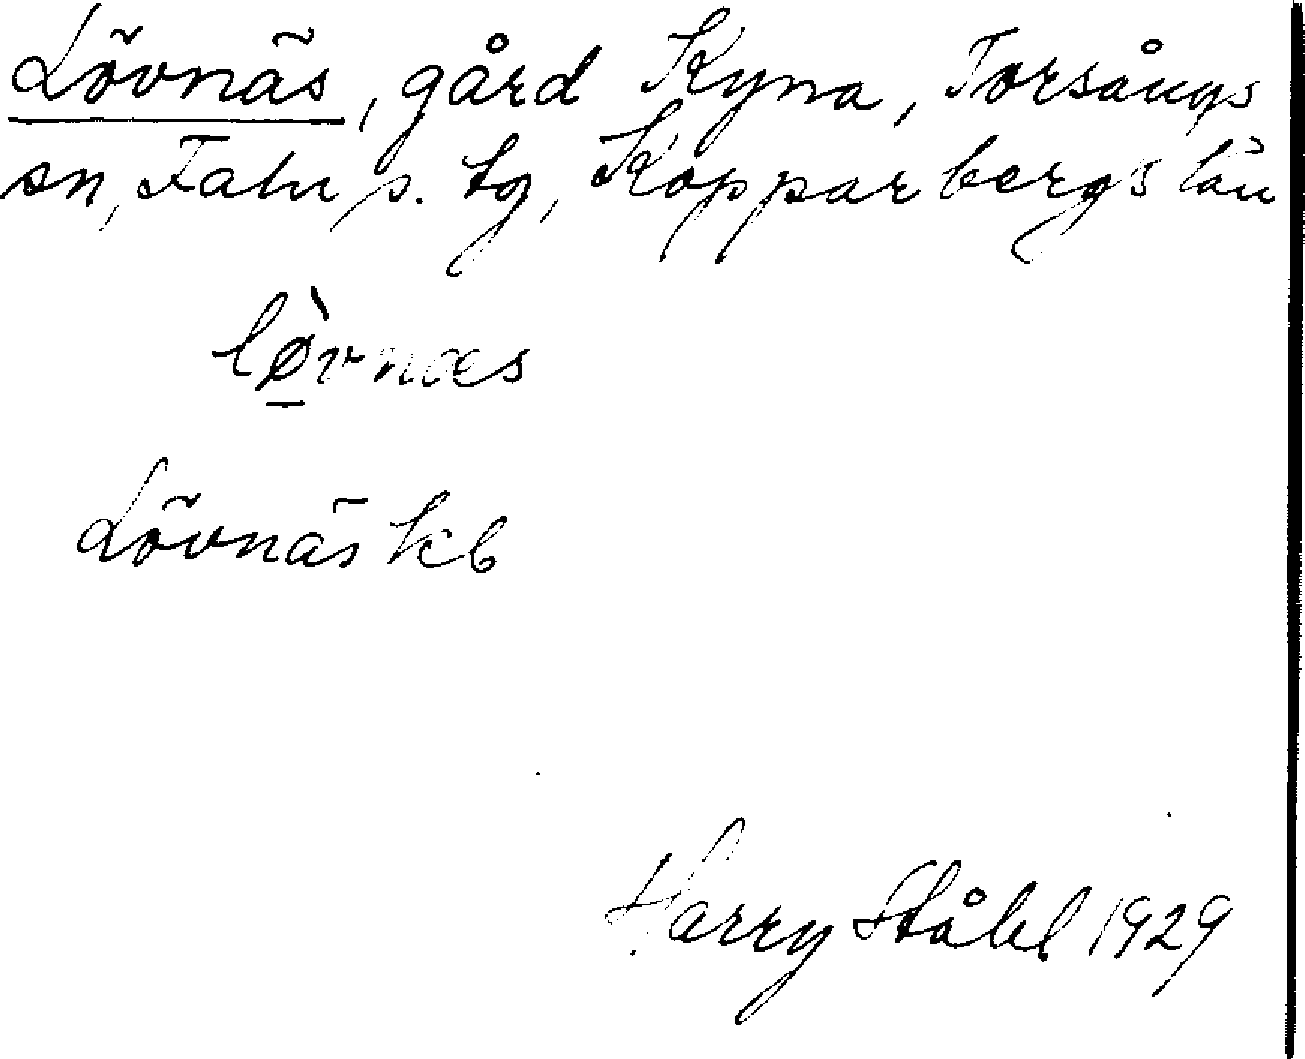 Lövnäs, gård Kyna, Torsångs
sn, Falu s. tg, Kopparbergs län
lø̱̀vnæs
Lövnäs kb
Harry Ståhl 1929